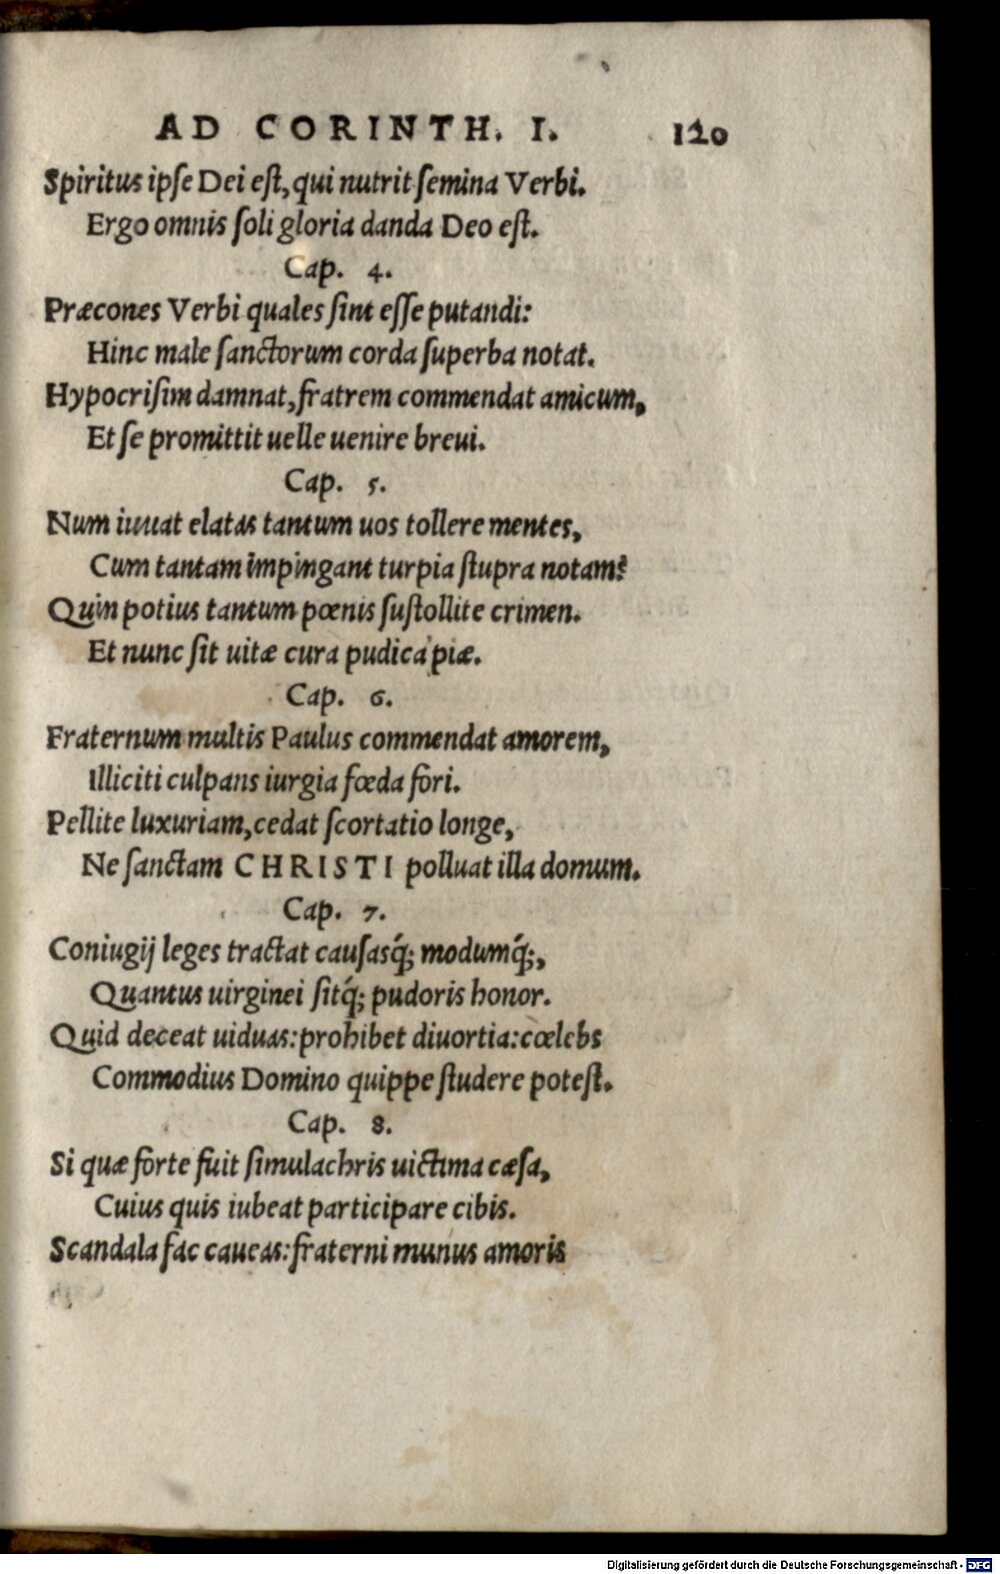 AD CORINTH. I. 120
Spiritus ipſe Dei eſt, qui nutrit ſemina Verbi.
Ergo omnis ſoli gloria danda Deo eſt.
Cap. 4.
Præcones Verbi quales ſint eſſe putandi:
Hinc male ſanctorum corda ſuperba notat.
Hypocriſim damnat, fratrem commendat amicum,
Et ſe promittit uelle uenire breui.
Cap. 5.
Num iuuat elatas tantum uos tollere mentes,
Cum tantam impingant turpia ſtupra notam?
Quin potius tantum pœnis ſuſtollite crimen.
Et nunc ſit uitæ cura pudica piæ.
Cap. 6.
Fraternum multis Paulus commendat amorem,
Illiciti culpans iurgia fœda fori.
Pellite luxuriam, cedat ſcortatio longe,
Ne ſanctam CHRISTI polluat illa domum.
Cap. 7.
Coniugij leges tractat cauſasq́; modumq́;,
Quantus uirginei ſitq́; pudoris honor.
Quid deceat uiduas: prohibet diuortia: cœlebs
Commodius Domino quippe ſtudere poteſt.
Cap. 8.
Si quæ forte fuit ſimulachris uictima cæſa,
Cuius quis iubeat participare cibis.
Scandala fac caueas: fraterni munus amoris
Digitalisierung gefördert durch die Deutsche Forschungsgemeinschaft - DFG